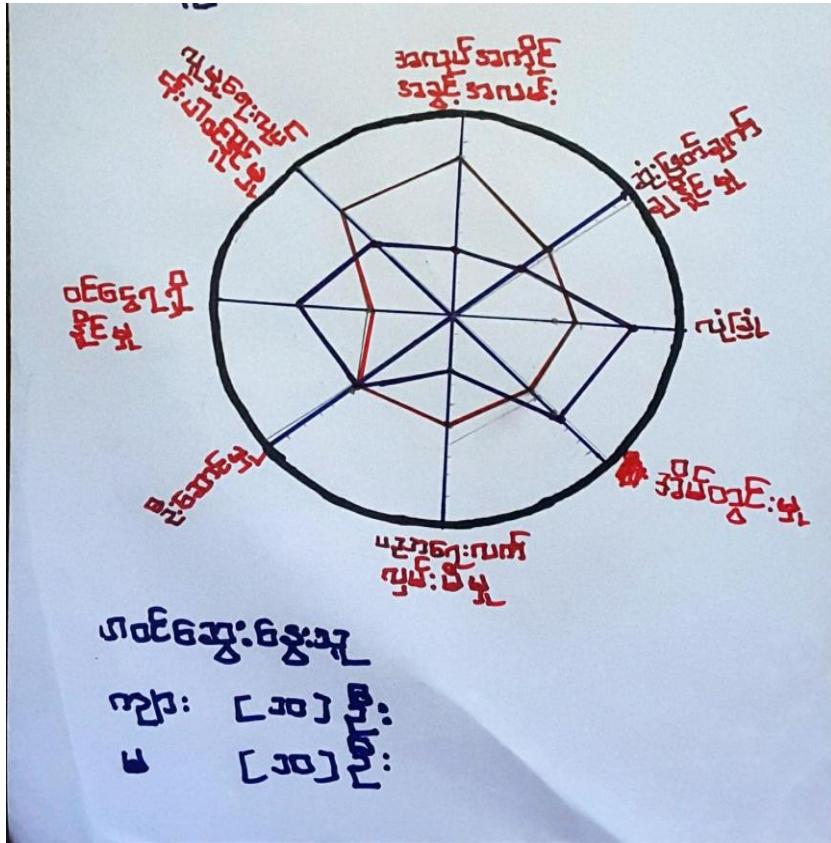 အလုပ်အကိုင်
အခွင့်အလမ်း
ဆုံးဖြတ်ချက်
ချနိုင်မှု
လုံခြုံ
အိမ်တွင်းမှု
ပညာရေးလက်
လှမ်းမီမှု
စီးဆောင်မှု
ဝင်ငွေရရှိ
နိုင်မှု
လူမှုရေးလုပ်
ငန်းပါဝင်နိုင်မှု
ပါဝင်ဆွေးနွေးသူ
ကျား [၁၀] ဦး
မ [၁၀] ဦး